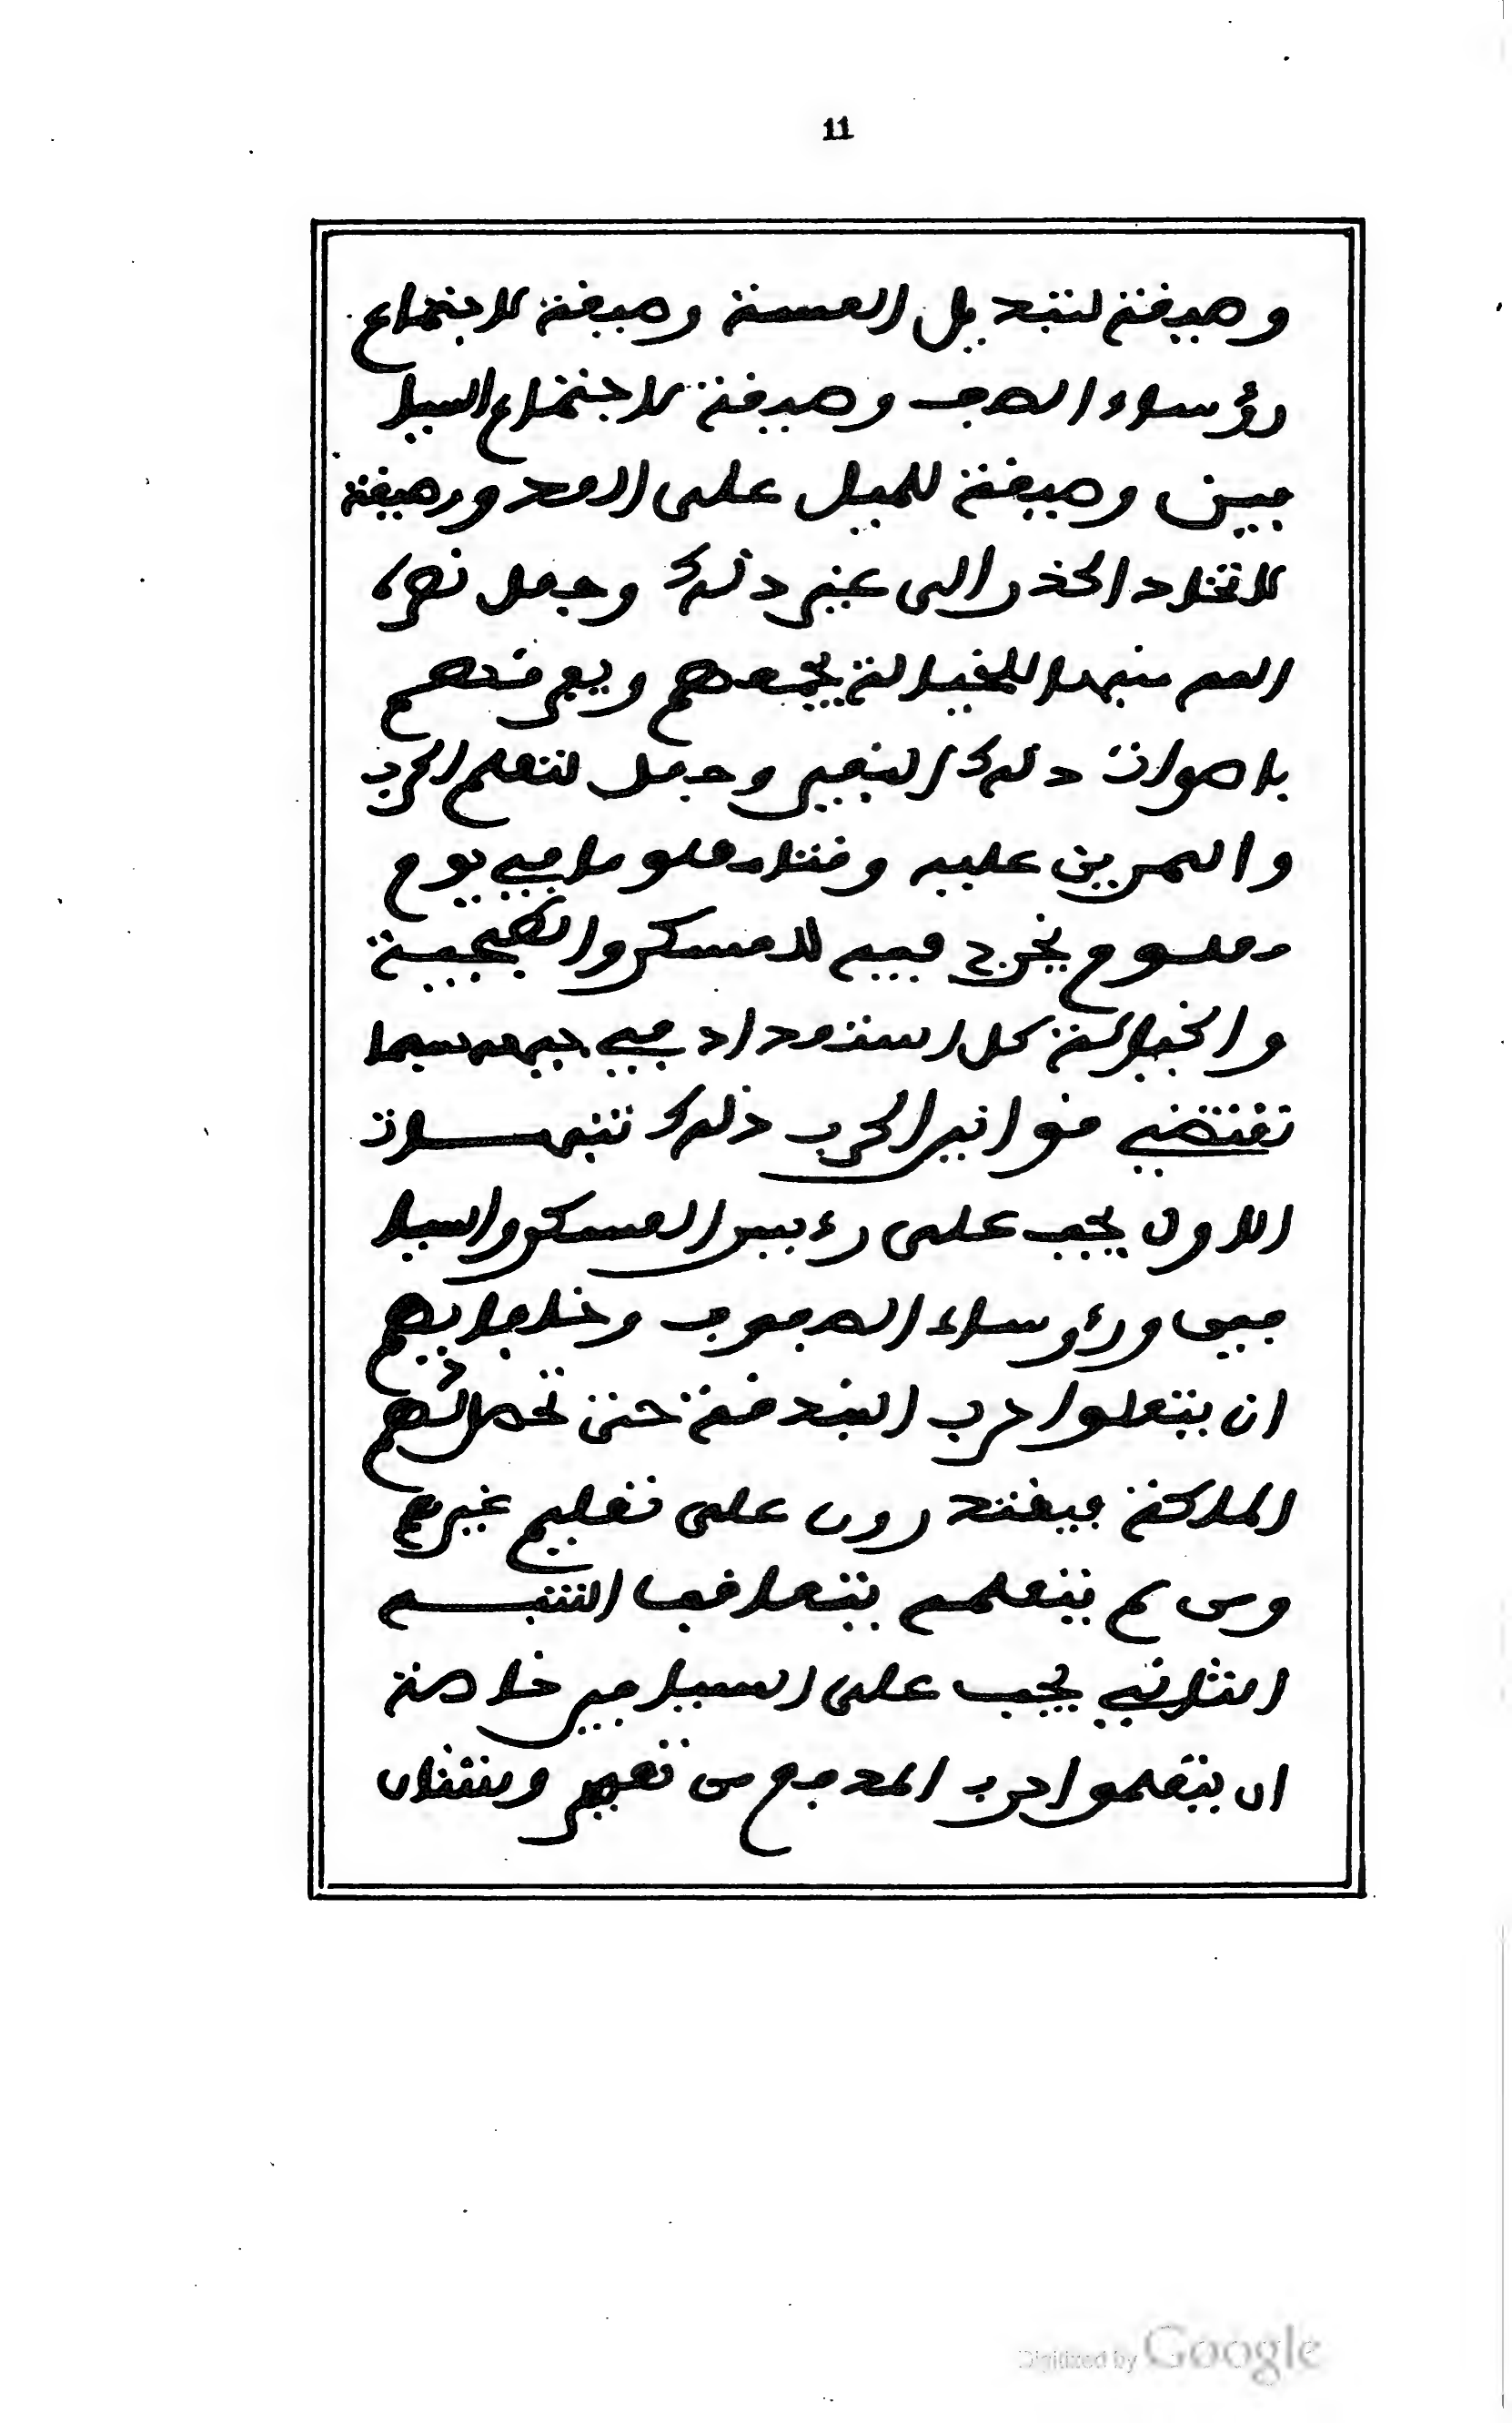 11
وصيفة لتبديل العسة وصيفة للاجتماع
رؤساء الصف وصيفة للاجتماع السيا
فين وصيفة للميل على العد وصيفة
للاتخاد الحذر الى غير ذلك وجعل
العم منها للخيالة يجمعهم ويعرفهم
باصوات ذلك النفير وجعل لتعلم الحرب
والتمرين عليه وقتا معلوما في يوم
معلوم يخرج فيه للعسكر والطبجية
والخيالة كل استعداد في جيهه سيما
تقتضي قوانير الحرب ذلك تنبيهات
الاول يجب على رءيس العسكر والسيا
فين ورؤساء الصفوف وخلفايهم
ان يتعلموا حرب البندقة حتى تحصل لهم
الملكة فيقتدرون على تعليم غيرهم
ومن لم يتعلم يتعاقب التنبيه
الثاني يجب على السيافين خاصة
ان يتعلموا حرب المدفع من تعمير